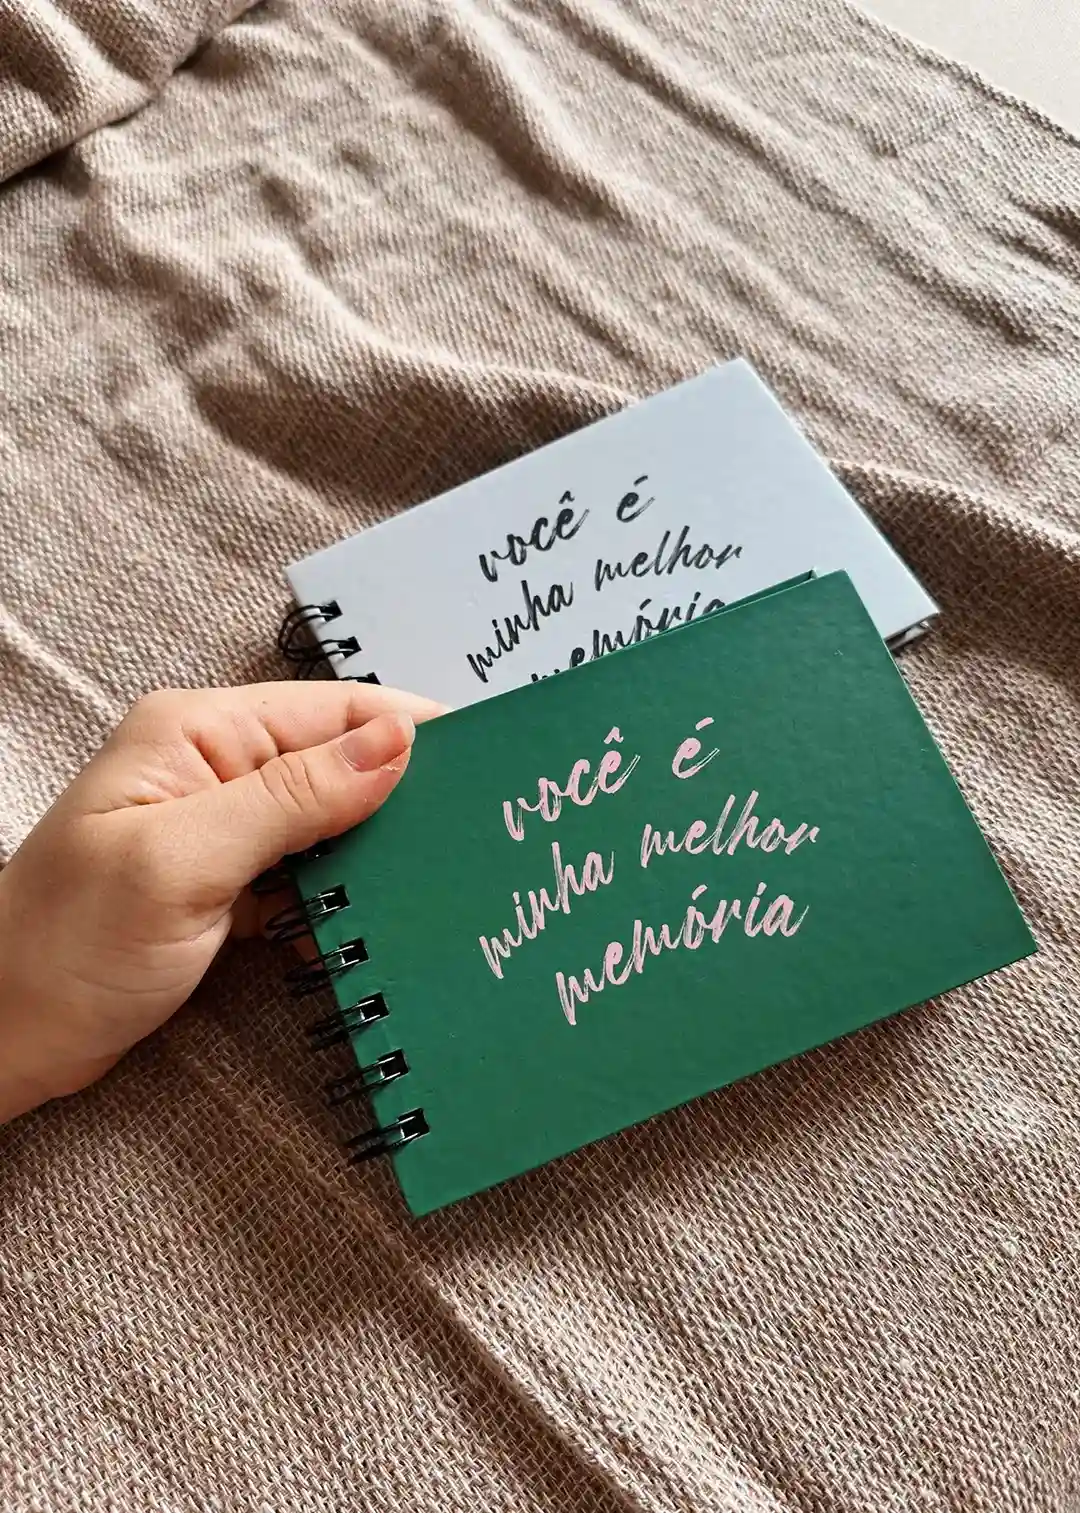 você é
minha melhor
memória
você é
minha melhor
memória